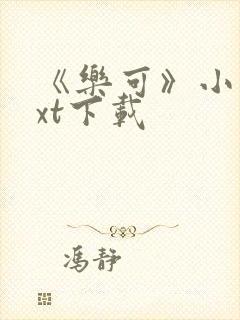 《樂可》小
xt下載
馮靜